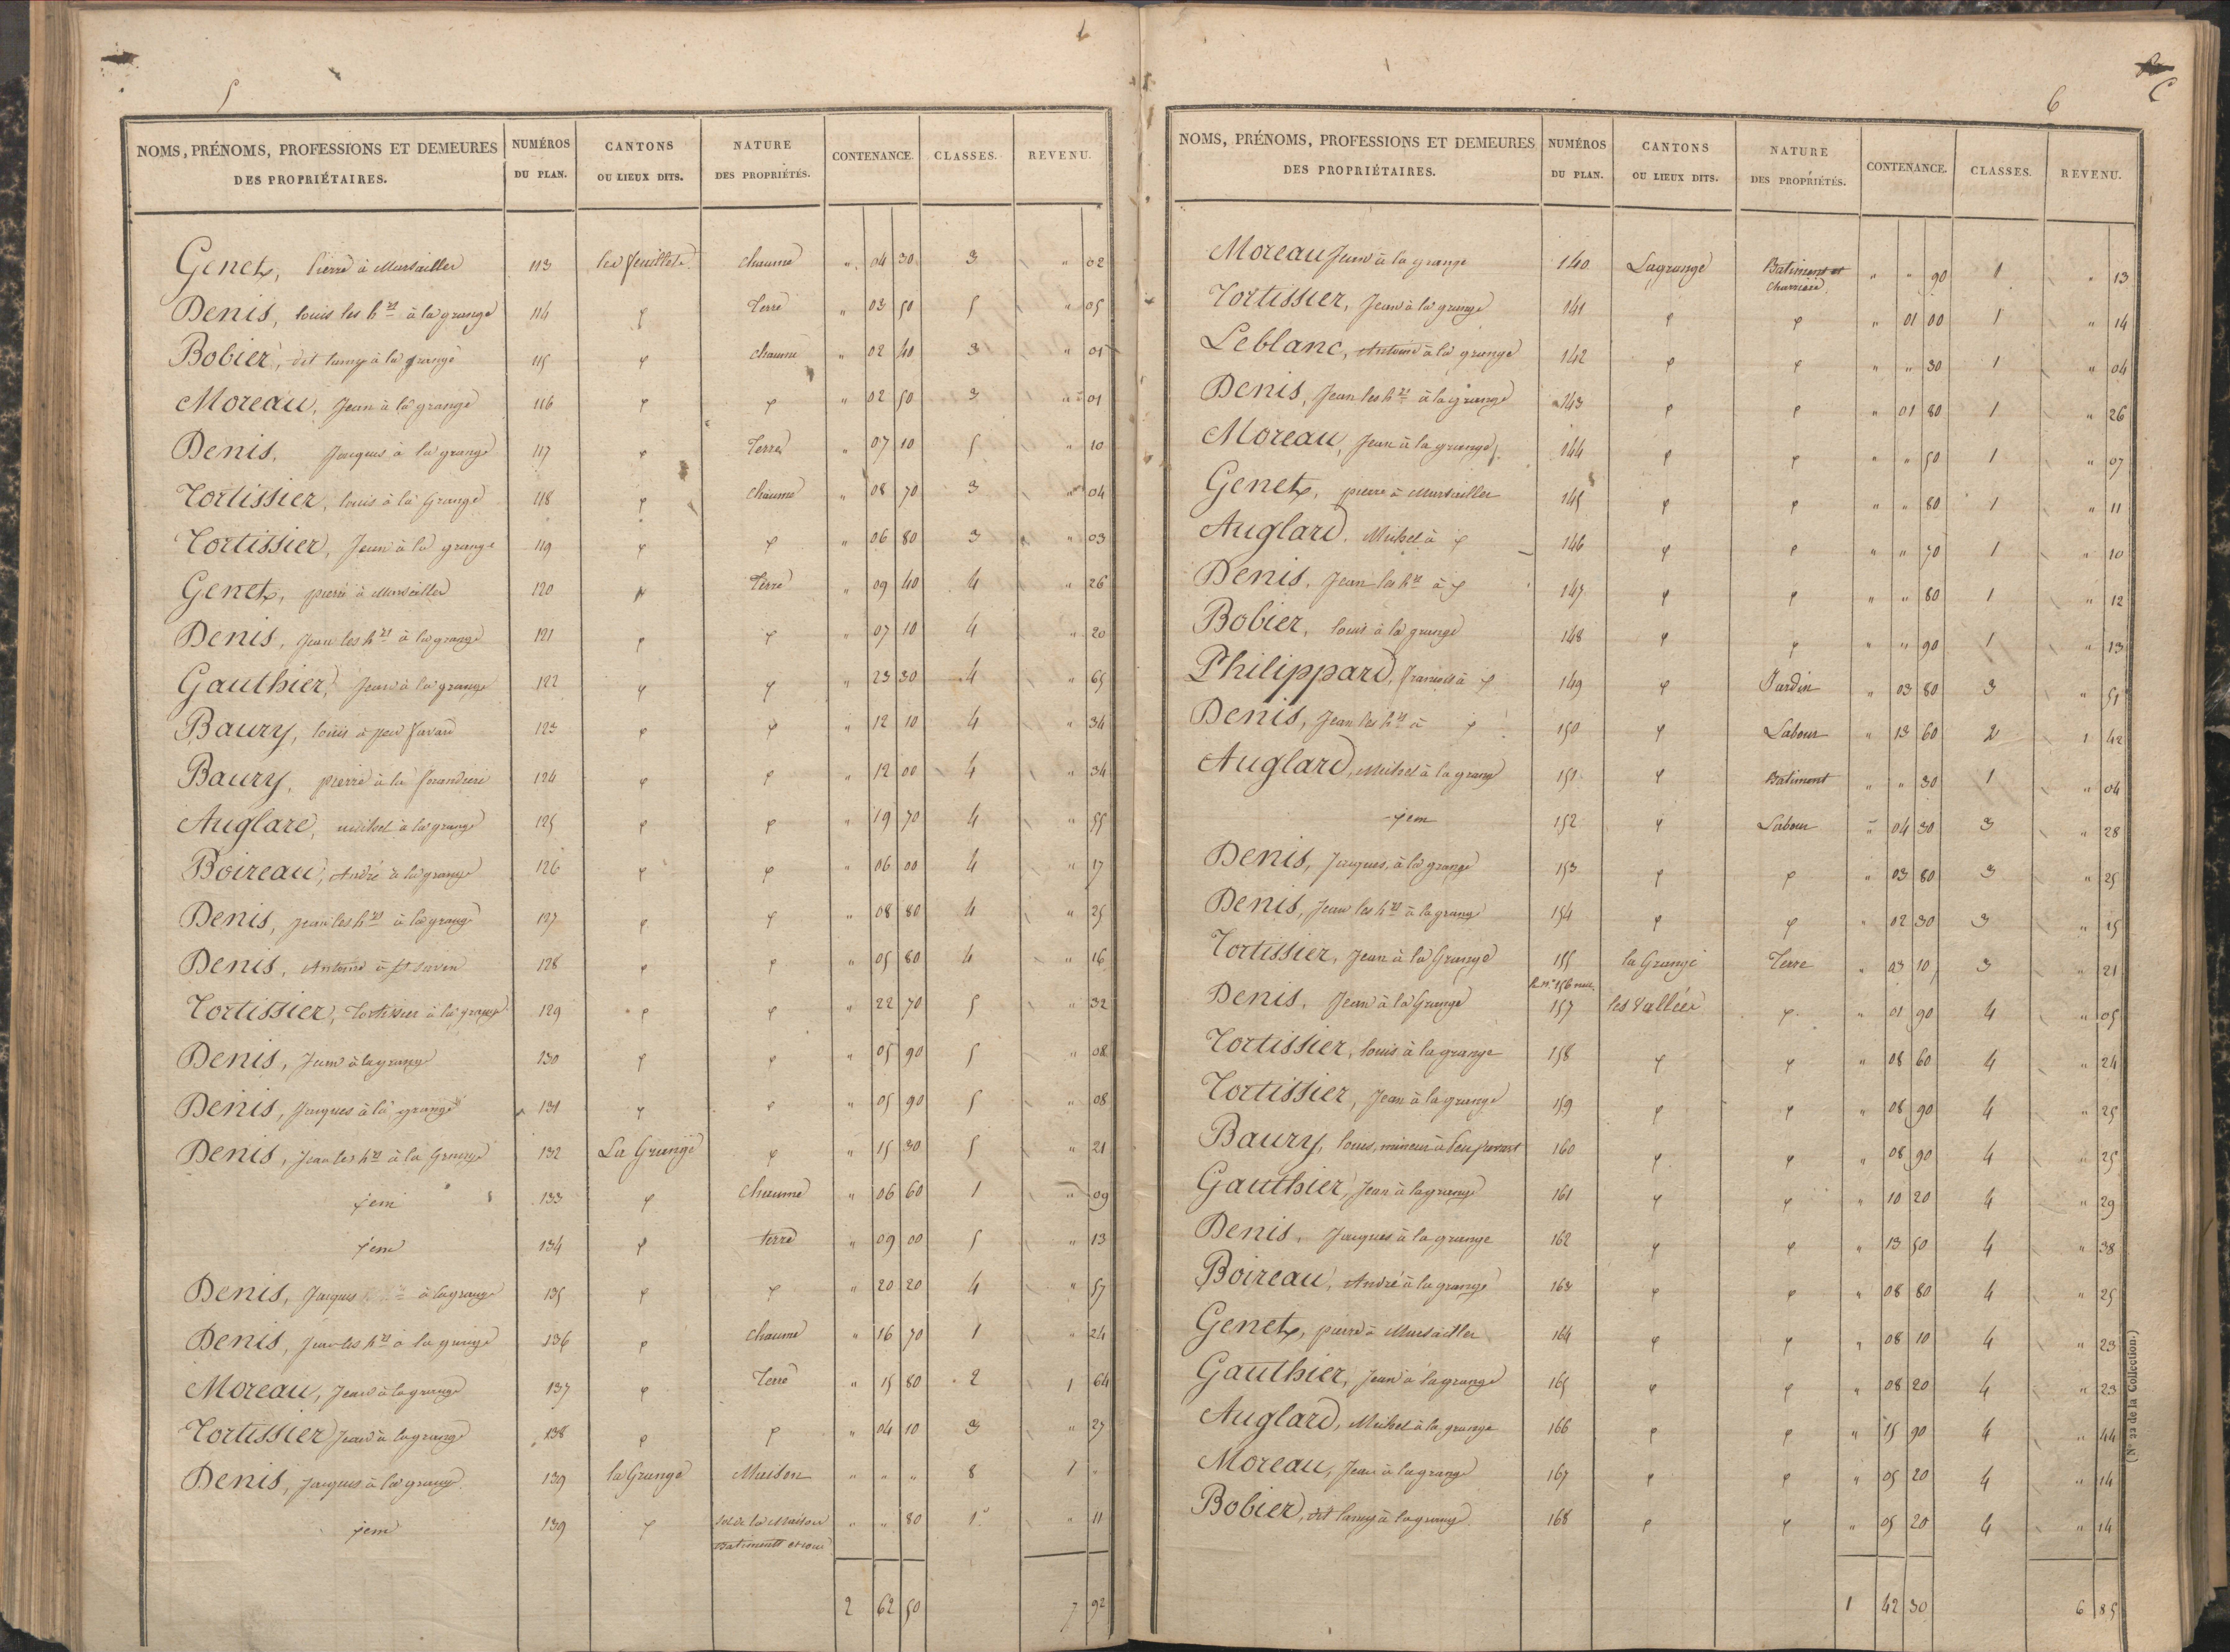 5
NOMS, PRÉNOMS, PROFESSIONS ET DEMEURES DES PROPRIÉTAIRES. NUMÉROS DU PLAN. CANTONS OU LIEUX DITS. NATURE DES PROPRIÉTÉS. CONTENANCE. CLASSES. REVENU.
Genet, Pierre à Marsailler 113 les feuillets chaume " 04 30 3 " 02
Denis, louis les hrs à la grange 114 φ Terre " 03 50 5 " 05
Bobier, dit lamy à la grange 115 φ chaume " 02 40 3 " 01
Moreau, Jean à la grange 116 φ φ " 02 50 3 " 01
Denis, Jacques à la grange 117 φ Terre " 07 10 5 " 10
Tortissier, louis à la Grange 118 φ chaume " 08 70 3 " 04
Tortissier, Jean à la grange 119 φ φ " 06 80 3 " 03
Genet, pierre à Marsailler 120 φ Terre " 09 40 4 " 26
Denis, Jean les hrs à la grange 121 φ φ " 07 10 4 " 20
Gauthier, Jean à la grange 122 φ φ " 23 30 4 " 65
Baury, louis à peu favard 123 φ φ " 12 10 4 " 34
Baury, pierre à la 124 φ φ " 12 00 4 " 34
Auglare, michel à la grange 125 φ φ " 19 70 4 " 55
Boireau, André à la grange 126 φ φ " 06 00 4 " 17
Denis, Jean les hrs à la grange 127 φ φ " 08 80 4 " 25
Denis, Antoine à St Savin 128 φ φ " 05 80 4 " 16
Tortissier, Tortissier à la grange 129 φ φ " 22 70 5 " 32
Denis, Jean à la grange 130 φ φ " 05 90 5 " 08
Denis, Jacques à la grange 131 φ φ " 05 90 5 " 08
Denis, Jean les hrs à la Grange 132 La Grange φ " 15 30 5 " 21
φem 133 φ Chaume " 06 60 1 " 09
φem 134 φ terre " 09 00 5 " 13
Denis, Jacques à la grange 135 φ φ " 20 20 4 " 57
Denis, Jean les hrs à la grange 136 φ chaume " 16 70 1 " 24
Moreau, Jean à la grange 137 φ Terre " 15 80 2 1 64
Tortissier Jean à la grange 138 φ φ " 04 10 3 " 27
Denis, Jacques à la grange 139 la Grange Maison " " " 8 1 "
φem 139 φ Sol de la Maison " " 80 1 " 11
Batiments et cour
2 62 50 7 92
6
NOMS, PRÉNOMS, PROFESSIONS ET DEMEURES DES PROPRIÉTAIRES. NUMÉROS DU PLAN. CANTONS OU LIEUX DITS. NATURE DES PROPRIÉTÉS. CONTENANCE. CLASSES. REVENU.
Moreau Jean à la grange 140 Lagrange Batiment et " " 90 1 " 13
Tortissier, Jean à la grange 141 φ φ " 01 00 1 " 14
Leblanc, Antoine à la grange 142 φ φ " " 30 1 " 04
Denis, Jean les hrs à la grange 143 φ φ " 01 80 1 " 26
Moreau, Jean à la grange 144 φ φ " " 50 1 " 07
Genet, pierre à Marsailler 145 φ φ " " 80 1 " 11
Auglard, Michel à φ 146 φ φ " " 70 1 " 10
Denis, Jean les hrs à φ 147 φ φ " " 80 1 " 12
Bobier, louis à la grange 148 φ φ " " 90 1 " 13
Philippard, francois à φ 149 φ Jardin " 03 80 3 " 51
Denis, Jean les hrs à φ 150 φ Labour " 13 60 2 1 42
Auglard, Michel à la grange 151 φ Batiment " " 30 1 " 04
φem 152 φ Labour " 04 30 3 " 28
Denis, Jacques, à la grange 153 φ φ " 03 80 3 " 25
Denis, Jean les hrs à la grange 154 φ φ " 02 30 3 " 15
Tortissier, Jean à la Grange 155 la Grange Terre " 03 10 3 " 21
le n° 156 nul
Denis, Jean à la Grange 157 les Vallées φ " 01 90 4 " 05
Tortissier, louis à la grange 158 φ φ " 08 60 4 " 24
Tortissier, Jean à la grange 159 φ φ " 08 90 4 " 25
Baury, louis, mineur à 160 φ φ " 08 90 4 " 25
Gauthier, Jean à la grange 161 φ φ " 10 20 4 " 29
Denis, Jacques à la grange 162 φ φ " 13 50 4 " 38
Boireau, André à la grange 163 φ φ " 08 80 4 " 25
Genet, pierre à Marsailler 164 φ φ " 08 10 4 " 23
Gauthier, Jean à la grange 165 φ φ " 08 20 4 " 23
Auglard, Michel à la grange 166 φ φ " 15 90 4 " 44
Moreau, Jean à la grange 167 φ φ " 05 20 4 " 14
Bobier, dit lamy à la grange 168 φ φ " 05 20 4 " 14
1 42 30 6 85
(N° 22 de la Collection.)